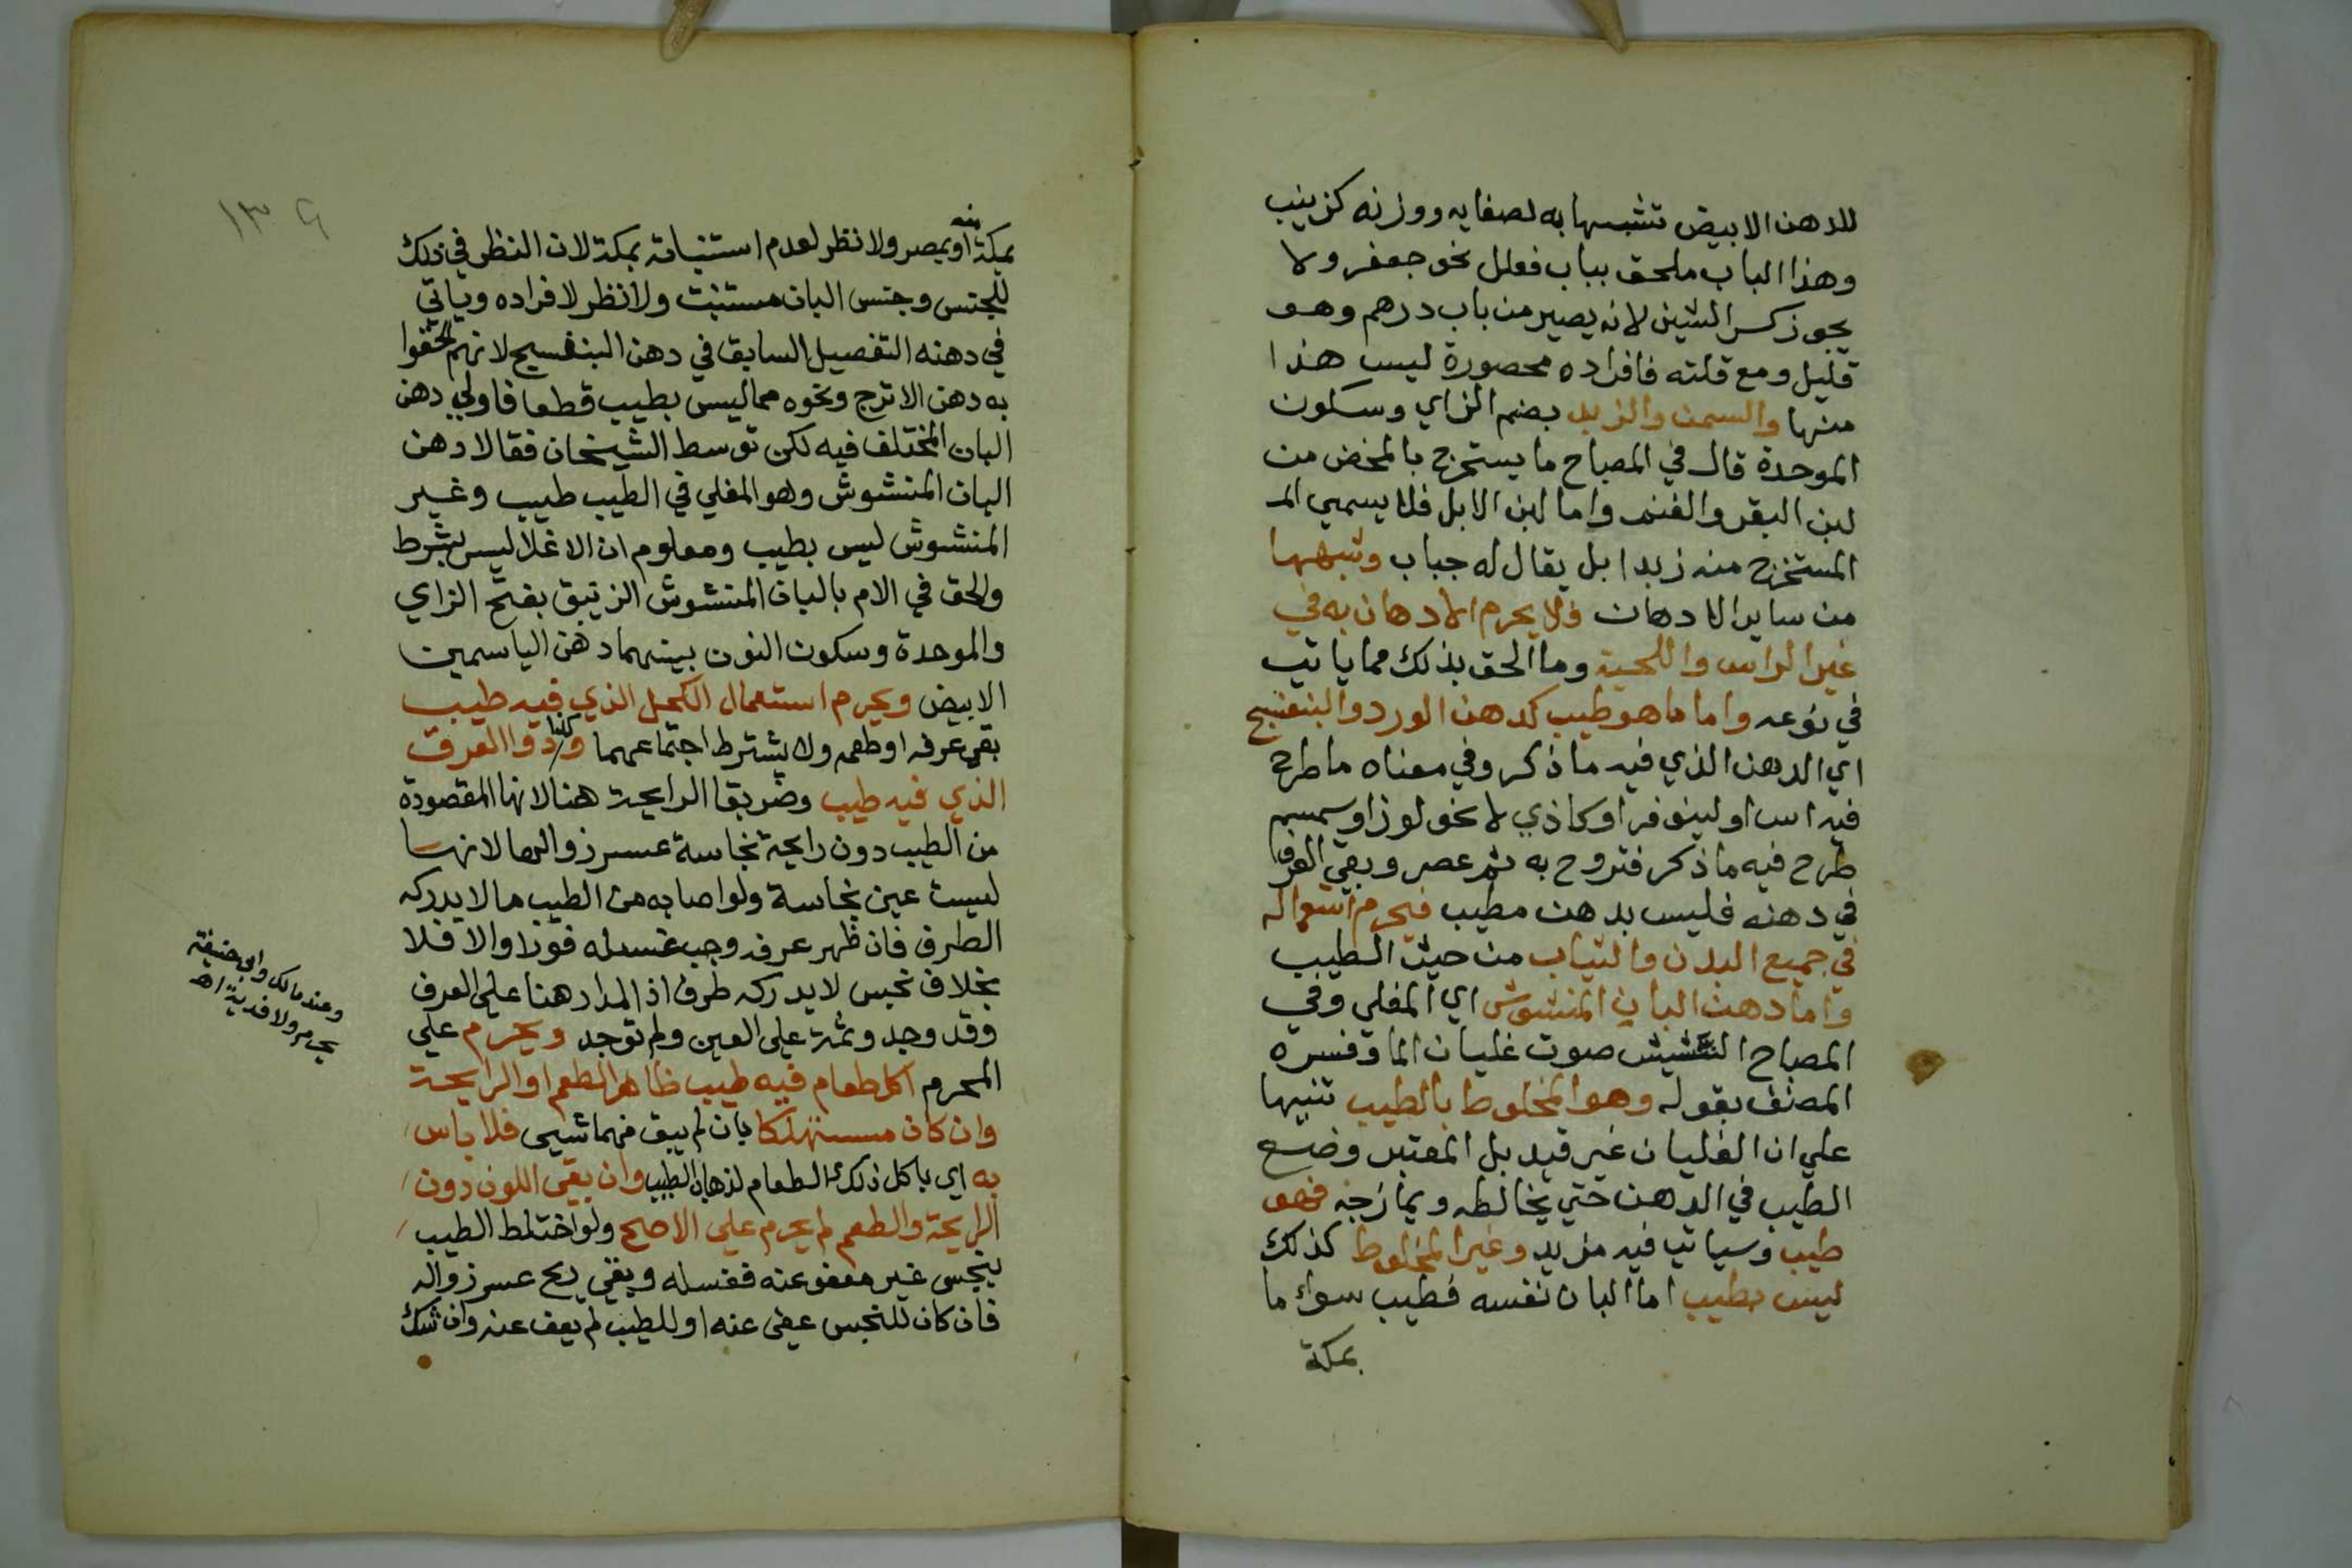 للدهن الابيض تشبيها به لصفايه ووزنه كزينب
وهذا الباب ملحق بباب فعلل نحو جعفر ولا
يجوز كسر الشين لانه يصير من باب درهم وهو
قليل ومع قلته فافراده محصورة ليس هذا
منها والسمن والزبد بضم الزاي وسكون
الموحدة قال في المصباح ما يستخرج بالمخض من
لبن البقر والغنم واما لبن الابل فلا يسمي الم
المستخرج منه زبدا بل يقال له جباب وشبهها
من ساير الادهان فلا يحرم الادهان به في
غير الراس واللحية وما الحق بذلك مما ياتي
في نوعه واما ما هو طيب كدهن الورد والبنفسج
اي الدهن الذي فيه ما ذكر وفي معناه ما طرح
فيه اس او لينوفر او كاذي لا نحو لوز او سمسم
طرح فيه ما ذكر فتروح به ثم عصر وبقي العرف
في دهنه فليس بدهن مطيب فيحرم استعماله
في جميع البدن والثياب من حيث الطيب
واما دهن البان المنشوش اي المغلي وفي
المصباح النشيش صوت غليان الما وفسره
المصنف بقوله وهو المخلوط بالطيب تنبيها
علي ان الغليان غير قيد بل المعتبر وضع
الطيب في الدهن حتي يخالطه ويمازجه فهو
طيب وسياتي فيه مزيد وغير المخلوط كذلك
ليس بطيب اما البان نفسه فطيب سواء ما
بمكة
١٣٩
بمكة او بمصر ولا نظر لعدم استنباته بمكة لان النظر في ذلك
للجنس وجنس البان مستنبت ولا نظر لافراده وياتي
في دهنه التفصيل السابق في دهن البنفسج لانهم الحقوا
به دهن الاترج ونحوه مما ليس بطيب قطعا فاولي دهن
البان المختلف فيه لكن توسط الشيخان فقالا دهن
البان المنشوش وهو المغلي في الطيب طيب وغير
المنشوش ليس بطيب ومعلوم ان الاغلا ليس بشرط
والحق في الام بالبان المنشوش الزنبق بفتح الزاي
والموحدة وسكون النون بينهما دهن الياسمين
الابيض ويحرم استعمال الكحل الذي فيه طيب
بقي عرفه او طعمه ولا يشترط اجتماعهما وكذا دوا العرق
الذي فيه طيب وضر بقا الرايحة هنا لانها المقصودة
من الطيب دون رايحة نجاسة عسر زوالها لانها
ليست عين نجاسة ولو اصابه من الطيب ما لا يدركه
الطرف فان ظهر عرفه وجب غسله فورا والا فلا
بخلاف نجس لا يدركه طرف اذ المدار هنا علي العرف
وقد وجد وثمة علي العين ولم توجد ويحرم علي
المحرم اكل طعام فيه طيب ظاهر الطعم او الرايحة
وان كان مستهلكا بان لم يبق فهما شيي فلا باس
به اي باكل ذلك الطعام لذهاب الطيب وان بقي اللون دون
الرايحة والطعم لم يحرم علي الاصح ولو اختلط الطيب
بنجس غير معفو عنه فغسله وبقي ريح عسر زواله
فان كان للنجس عفي عنه او للطيب لم يعف عنه وان شك
وعند مالك وابي حنيفة
يحرم ولا فدية اه